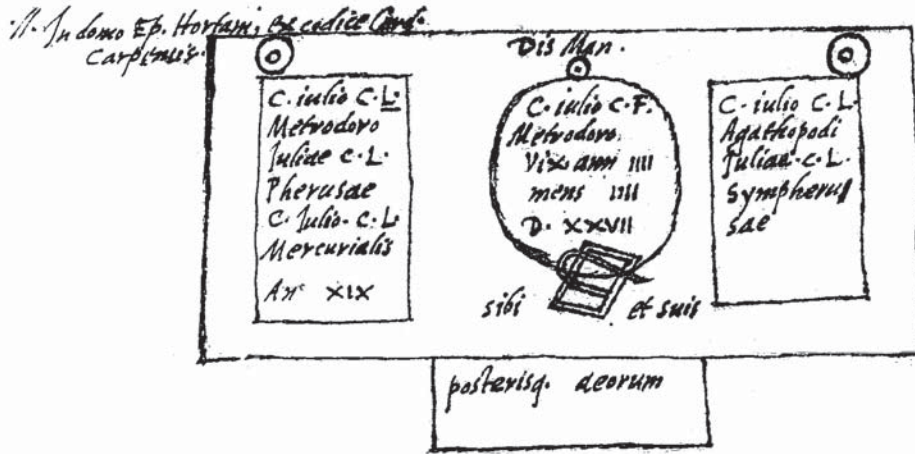 11. In domo Ep. Hortani, Ex codice Card.
Carpensis.
C. iulio C. L.
Metrodoro
Iuliae C. L.
Pherusae
C. Iulio. C. L.
Mercurialis
An. XIX
Dis Man.
C. iulio C. F.
Metrodoro.
Vix. ann IIII
mens IIII
D. XXVII
sibi et suis
C. iulio C. L.
Agathopodi
Iuliae. C. L.
Sympheru
sae
posterisq. aeorum